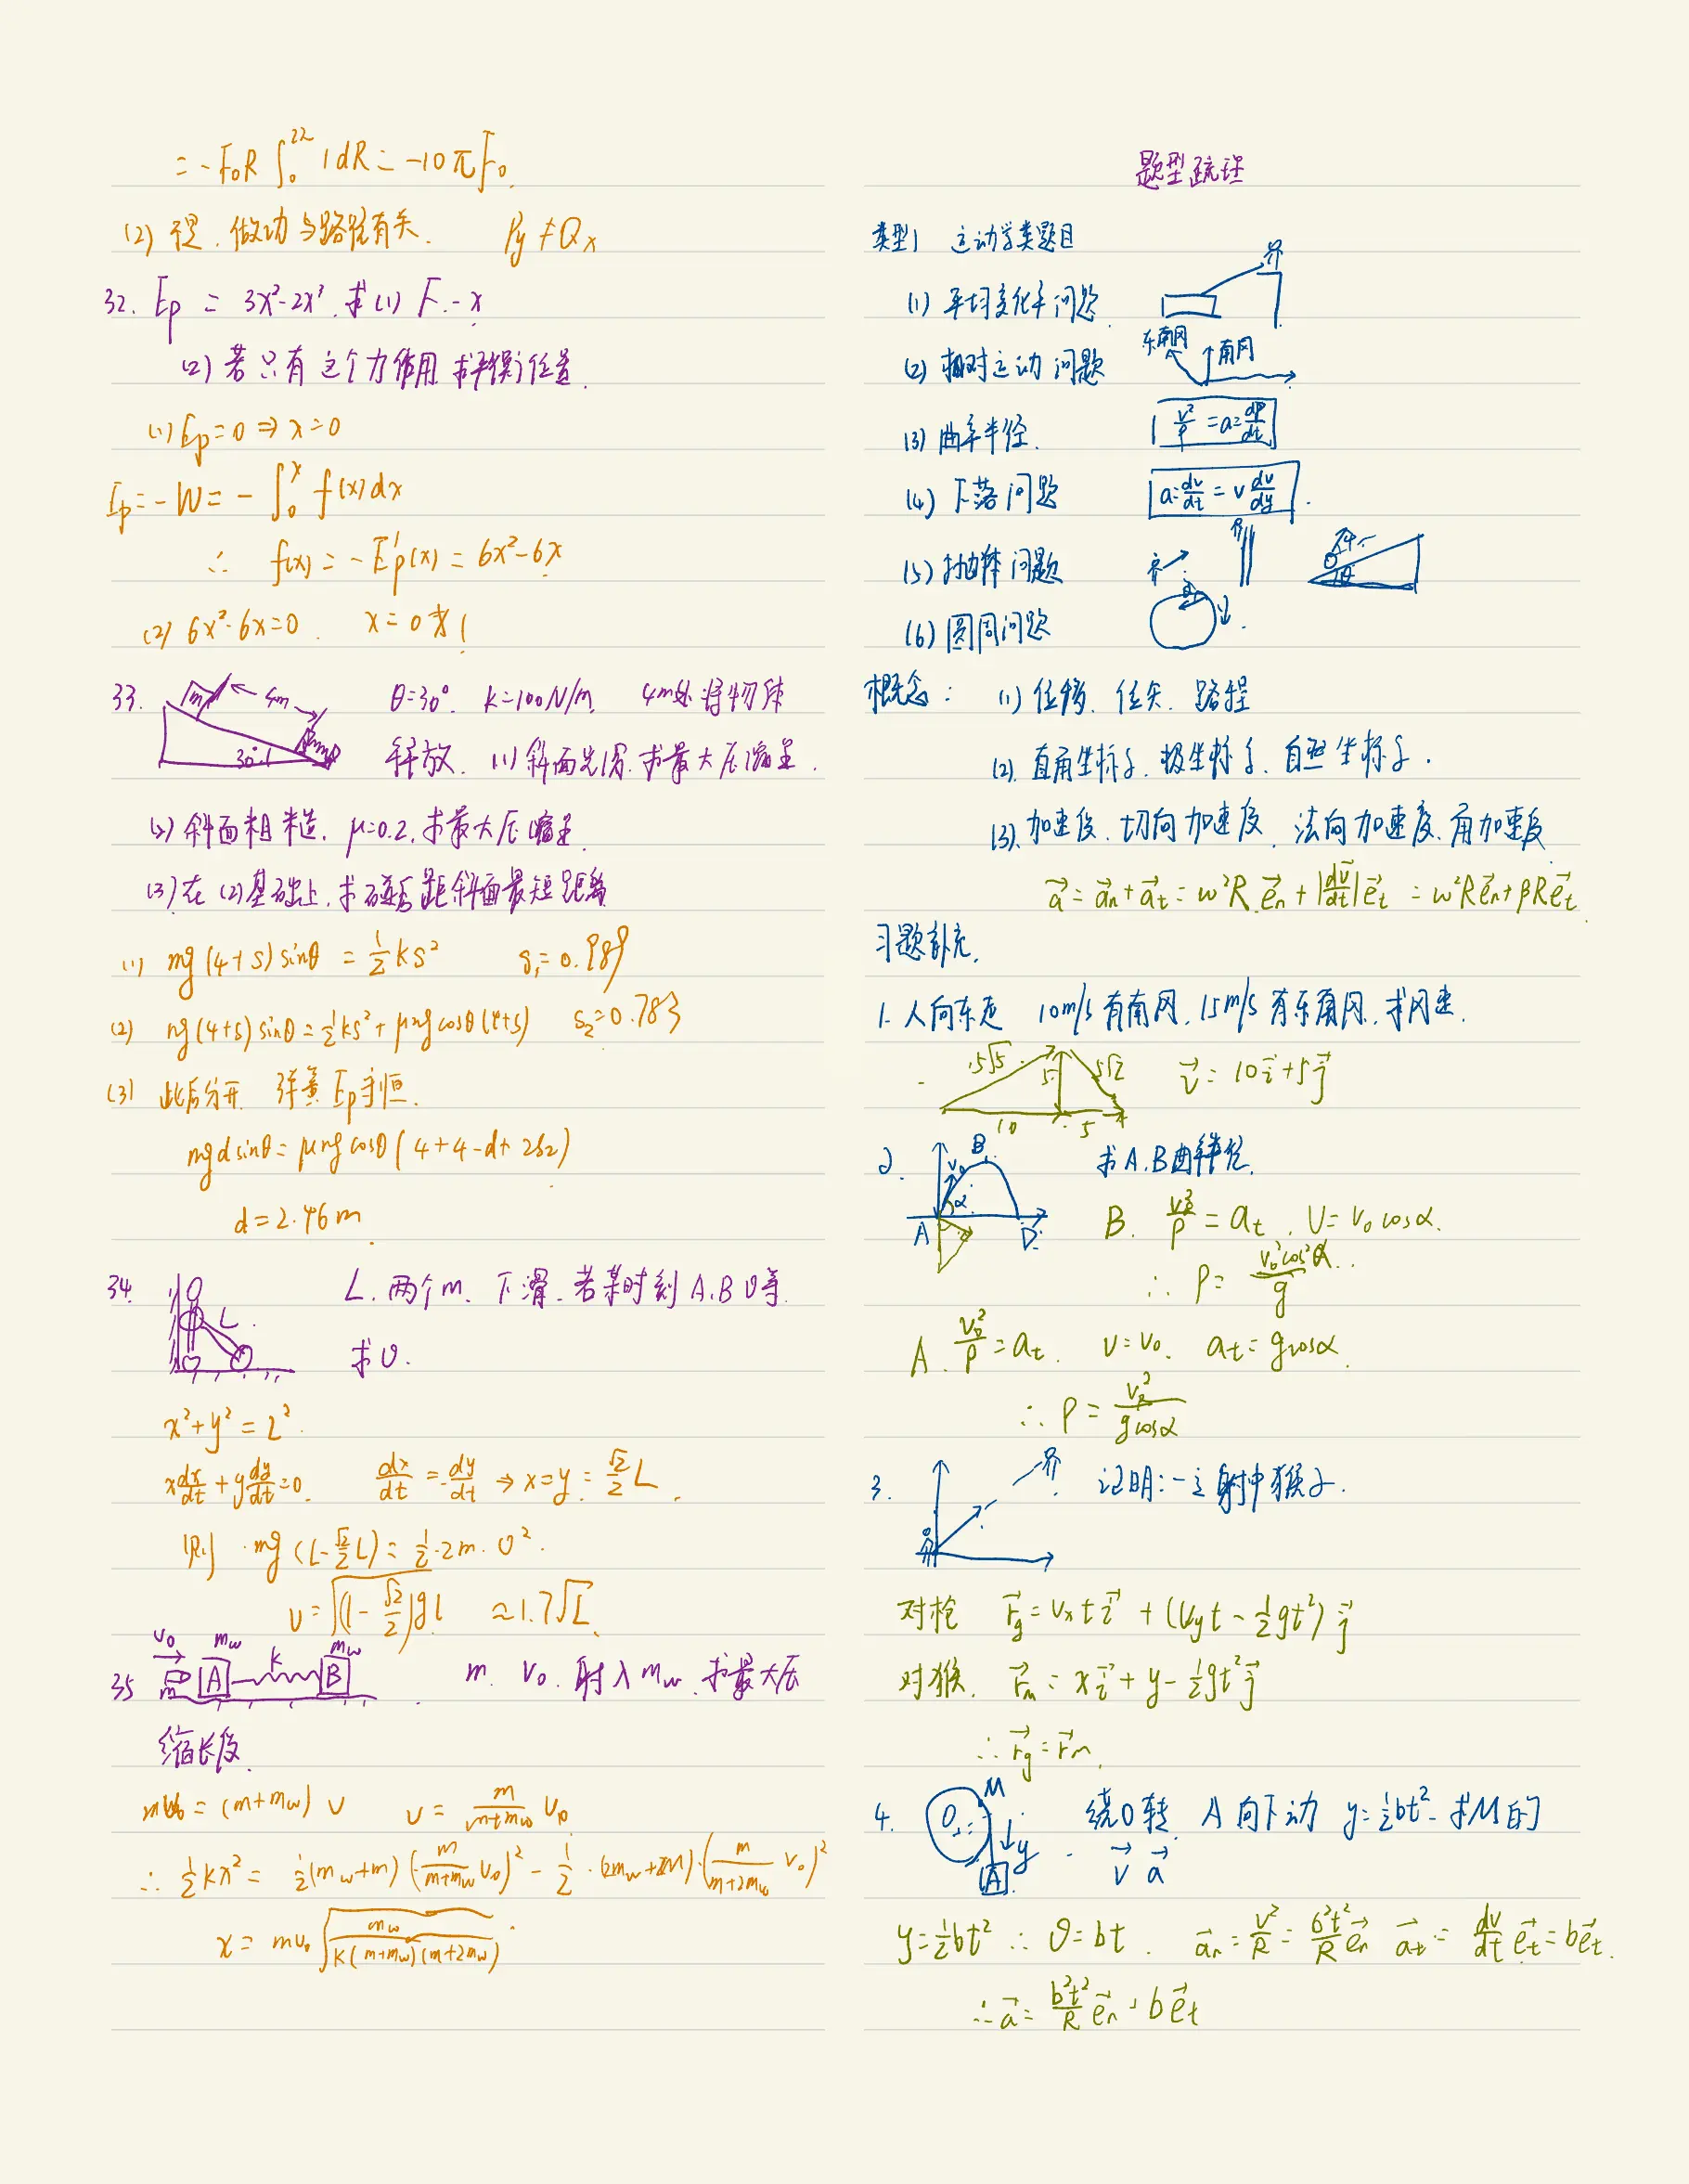 = -F₀R ∫₀^{2π} 1 dR = -10πF₀.
(2) 不是. 做功与路径有关. Py ≠ Qx
32. Ep = 3x²-2x³. 求(1) F-x
(2) 若只有这个力作用 求平衡位置.
(1) Ep=0 ⇒ x=0
Ep = -W = -∫₀^x f(x)dx
∴ f(x) = -Ep'(x) = 6x²-6x
(2) 6x²-6x=0. x=0或1
33. m 4m 30° θ=30°. k=100N/m 4m处将物体
释放. (1) 斜面光滑. 求最大压缩量.
(2) 斜面粗糙. μ=0.2, 求最大压缩量.
(3) 在(2)基础上, 求碰后距斜面最短距离
(1) mg(4+s)sinθ = ½ks² s₁=0.989
(2) mg(4+s)sinθ = ½ks²+μmgcosθ(4+s) s₂=0.783
(3) 此后分开 弹簧Ep守恒.
mgdsinθ = μmgcosθ(4+4-d+2s₂)
d=2.46m
34. L L. 两个m. 下滑. 若某时刻A.B υ等.
求υ.
x²+y²=L².
x dx/dt + y dy/dt = 0. dx/dt = -dy/dt → x=y=√2/2 L.
则 mg(L-√2/2 L) = ½·2m·υ².
υ=√((1-√2/2)gL) ≈1.7√L
35 v₀ m mw A k mw B m. v₀. 射入mw. 求最大压
缩长度.
mv₀ = (m+mw)υ υ = m/(m+mw) υ₀
∴ ½kx² = ½(mw+m)(m/(m+mw) υ₀)² - ½·(2mw+M)·(m/(m+2mw) v₀)²
x = mv₀ √(mw/(k(m+mw)(m+2mw))).
题型疏理
类型1 运动学类题目
(1) 平均变化率问题
(2) 相对运动问题 东南风 南风
(3) 曲率半径. v²/ρ = a = dv/dt
(4) 下落问题 a=dv/dt = v dv/dy.
(5) 抛体问题 θ
(6) 圆周问题
概念: (1) 位移、位矢、路程
(2). 直角坐标系. 极坐标系、自然坐标系.
(3). 加速度、切向加速度、法向加速度、角加速度
a⃗ = a⃗n+a⃗t = ω²R e⃗n + |dv⃗/dt| e⃗t = ω²Re⃗n+βRe⃗t
习题补充.
1. 人向东走 10m/s有南风, 15m/s有东南风, 求风速.
5√5 5 5√2 10 5 v⃗ = 10i⃗+5j⃗
2. v₀ B α A D 求A.B曲率半径.
B. v²/ρ = at. υ=v₀cosα.
∴ ρ = v₀²cos²α/g
A. v₀²/ρ = at. υ=v₀. at = gcosα.
∴ ρ = v₀²/gcosα
3. 证明: 一定射中猴子.
对枪 r⃗g = vx t i⃗ + (vy t - ½gt²) j⃗
对猴. r⃗m = x i⃗ + y - ½gt² j⃗
∴ r⃗g = r⃗m.
4. O M y A 绕O转. A向下动 y=½bt². 求M的
v⃗ a⃗
y=½bt² ∴ υ=bt. a⃗n = v²/R = b²t²/R e⃗n a⃗t = dv/dt e⃗t = be⃗t.
∴ a⃗ = b²t²/R e⃗n + b e⃗t